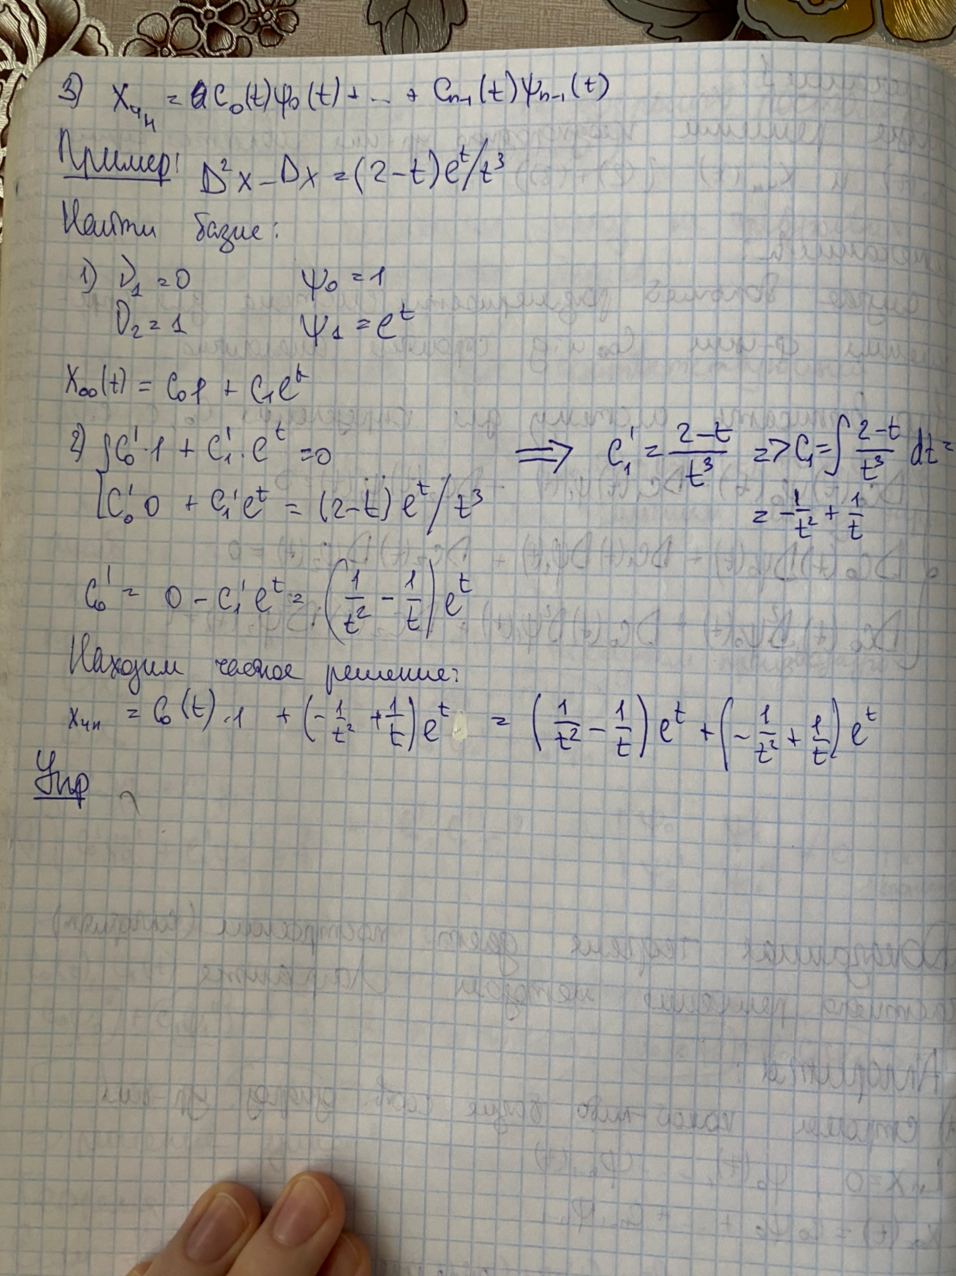 3) Xчн = C₀(t)ψ₀(t) + ... + Cₙ₋₁(t)ψₙ₋₁(t)
Пример: D²x - Dx = (2-t)eᵗ/t³
Найти базис:
1) ν₁ = 0 ψ₀ = 1
ν₂ = 1 ψ₁ = eᵗ
X₀₀(t) = C₀1 + C₁eᵗ
2) { C₀'·1 + C₁'·eᵗ = 0 ⟹ C₁' = (2-t)/t³ => C₁ = ∫ (2-t)/t³ dt =
C₀'0 + C₁'eᵗ = (2-t)eᵗ/t³ = -1/t² + 1/t
C₀' = 0 - C₁'eᵗ = (1/t² - 1/t)eᵗ
Находим частное решение:
Xчн = C₀(t)·1 + (-1/t² + 1/t)eᵗ = (1/t² - 1/t)eᵗ + (-1/t² + 1/t)eᵗ
Упр